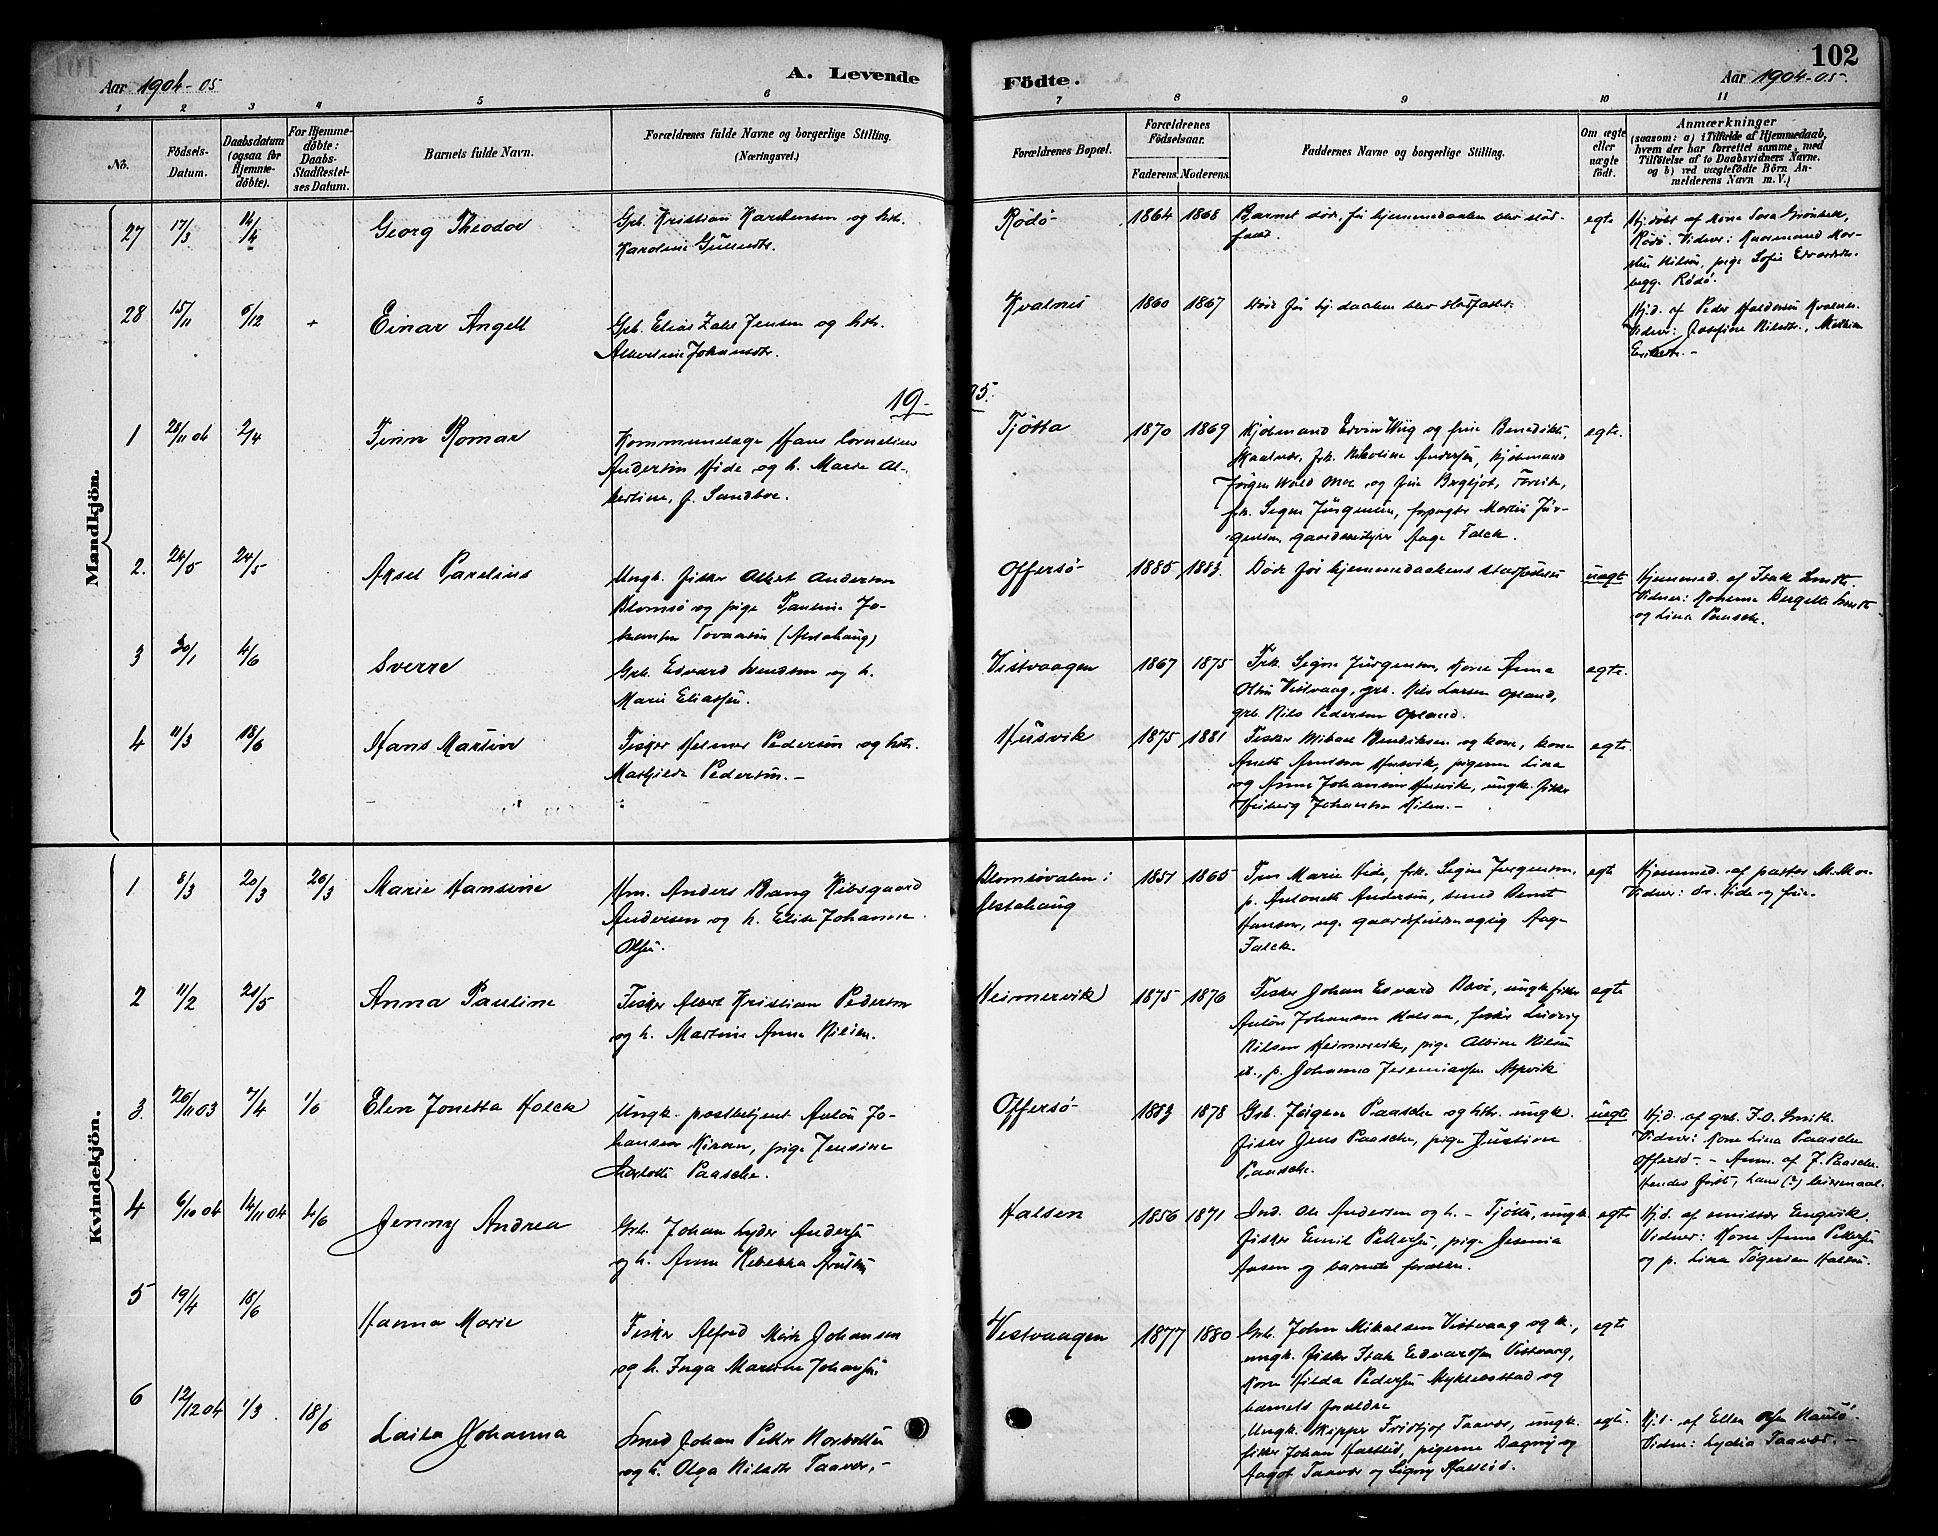 102
Aar 1904-05
A. Levende
Födte.
Aar 1904-05.
1 2 3 4 5 6 7 8 9 10 11
No.
Födsels-
Datum.
Daabsdatum
(ogsaa for
Hjemme-
döbte).
For Hjemme-
döbte:
Daabs-
Stadfestel-
ses Datum.
Barnets fulde Navn.
Forældrenes fulde Navne og borgerlige Stilling.
(Næringsvei.)
Forældrenes Bopæl.
Forældrenes
Födselsaar.
Faderens. Moderens.
Faddernes Navne og borgerlige Stilling.
Om ægte
eller
uægte
födt.
Anmærkninger
(saasom: a) i Tilfælde af Hjemmedaab,
hvem der har forrettet samme, med
Tilföielse af to Daabsvidners Navne.
og b) ved uægtefödte Börn An-
melderens Navn m. V.)
Mandkjön.
27 17/3 14/4 Georg Theodor
Grb. Kristian Karstensen og hst.
Karoline
Rödö 1864 1868 Barnet död, för hjemmedaaben blev stad-
fæst.
egte
Hj.döbt af Kone
Rödö. Vidner:
Nilsen, pige Sofie
begge Rödö.
28 15/11 6/12 + Einar Angell
Grb. Elias Jensen og hst.
Albertine Johansdtr.
Kvalnes 1860 1867 död för hj.daaben blev stadfæstet.
Hj.d. af Peder Kvalnes
Vidner: Josefine Nilsdtr.,
19-
05.
1 28/11 04 2/4 Finn Romar
Kommunelæge Hans Cornelius
Andersen Hide og h. Marie Al-
bertine, f. Sandboe.
Tjötta 1870 1869 Kjöbmand Ervin Wiig og frue Benedikte,
frk. Nikoline Andersen, Kjöbmand
Jörgen Wold Moe og frue Bergljot, Forvik,
frk. Signe Jürgensen, forpagter Martin Jür-
gensen, gaardsbestyrer Aage Falck.
egte.
2. 24/5 24/5 Aksel Parelius
Ungk. fisker Albert Andersen
Blomsö og pige Pauline Jo-
hansen Tovaasen (Alstahaug)
Offersö 1885 1883. Död för hjemmedaabens stadfæstelse
uægte
Hjemmed. af Isak Smith.
Vidner: Konerne Bergette Smith
og Lina Paasche.
3 30/1 4/6 Sverre
Grb. Edvard Svendsen og h.
Marie Eliassen.
Vistvaagen 1867 1875 Frk. Signe Jürgensen, Kone Anna
Olsen Vistvaag, grb. Nils Larsen Opland,
grb. Nils Pedersen Opland.
egte.
4 11/3 18/6 Hans Martin
Fisker Helmer Pedersen og hst.
Mathilde Pedersen. -
Husvik 1875 1881 Fisker Mikael Bendiksen og kone, kone
Anette Husvik, pigerne Lina
og Anna Johansen Husvik, ungk. fisker
Johansen
egte.
Kvindekjön.
1 8/3 20/3 26/3 Marie Hansine
Hm. Anders Bang Kibsgaard
Andersen og h. Elise Johanne
Olsen.
Blomsövalen i
Alstahaug
1851 1865 Fru Marie Hide, frk. Signe Jürgensen,
p. Antonette Andersen, smed Bernt
Hansen, ug. gaardsfuldmægtig Aage
Falck.
egte
Hjemmed. af pastor M. Moe.
Vidner: dr. Hide og frue.
2 11/2 21/5 Anna Pauline
Fisker Albert Kristian Pedersen
og h. Martine Anna Nilsen.
Heimervik 1875 1876 Fisker Johan Edvard Böe, ungk. fisker
Anton Johansen Halsen, fisker Ludvig
Nilsen Heimervik, pige Albine Nilsen
st., p. Johanna Jeremiassen
egte
3. 26/11 03 7/4 1/6 Elen Jonetta Holck
Ungk. postbetjent Anton Jo-
hansen Kiran, pige Jensine
Charlotte Paasche.
Offersö 1883 1878 Grb. Jörgen Paasche og hst. ungk.
fisker Jens Paasche, pige Justine
Paasche.
uegte
Hj.d. af grb. I. O. Smith.
Vidner: Kone Lina Paasche
Offersö. - Anm. af J. Paasche.
Hendes förste, hans (?) leiermaal.
4 6/10 04 14/11 04 4/6 Jenny Andrea
Grb. Johan Lyder Andersen
og h. Anna Rebekka
Halsen 1856 1871 Ind. Ole Andersen og h. - Tjötta, ungk.
fisker Emil Pettersen, pige Jesenia
Aasen og barnets forældre.
egte
Hj.d. af emissær Engvik.
Vidner: Kone Anna Pettersen
og p. Lina Halsen.
5 19/4 18/6 Hanna Marie
Fisker Alfred Mörk Johansen
og h. Inga Martine Johansen
Vistvaagen 1877 1880 Grb. John Mikalsen Vistvaag og h.,
ungk. fisker Isak Edvardsen Vistvaag,
Kone Hilda Pedersen Mykleöstad og
barnets forældre
egte
6 12/12 04 1/3 18/6 Laila Johanna
Smed Johan Petter
og h. Olga Nilsdtr. Taavær. -
Ungk. skipper Fridtjof Taavær, ungk.
fisker Johan Halseid, pigerne Dagny og
Aagot Taavær og Signy Halseid.
egte.
Hj.d. af Ellen Olsen
Vidner: Lydia Taavær. -